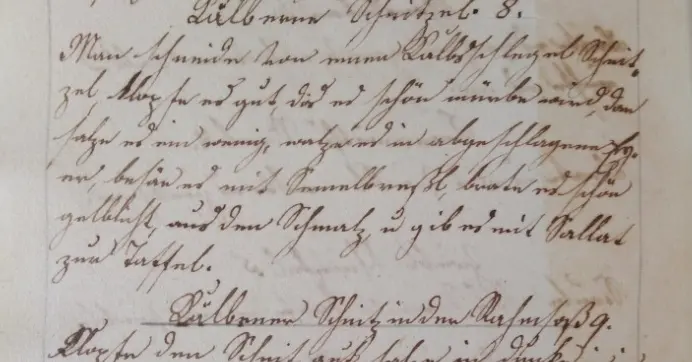 Kälberne Schnitzel. 8.
Man schneide von einen Kalbsschlegel Schnit-
zel, klopfe es gut, daß es schön mürbe wird, dan
salze es ein wenig, walze es in abgeschlagene Ey-
er, besäe es mit Semelbresel, brate es schön
gelblicht, aus den Schmalz, u gib es mit Sallat
zur Taffel.
Kälberner Schnitz in der Rahmsoß 9.
Klopfe den Schnitz aus, salze in